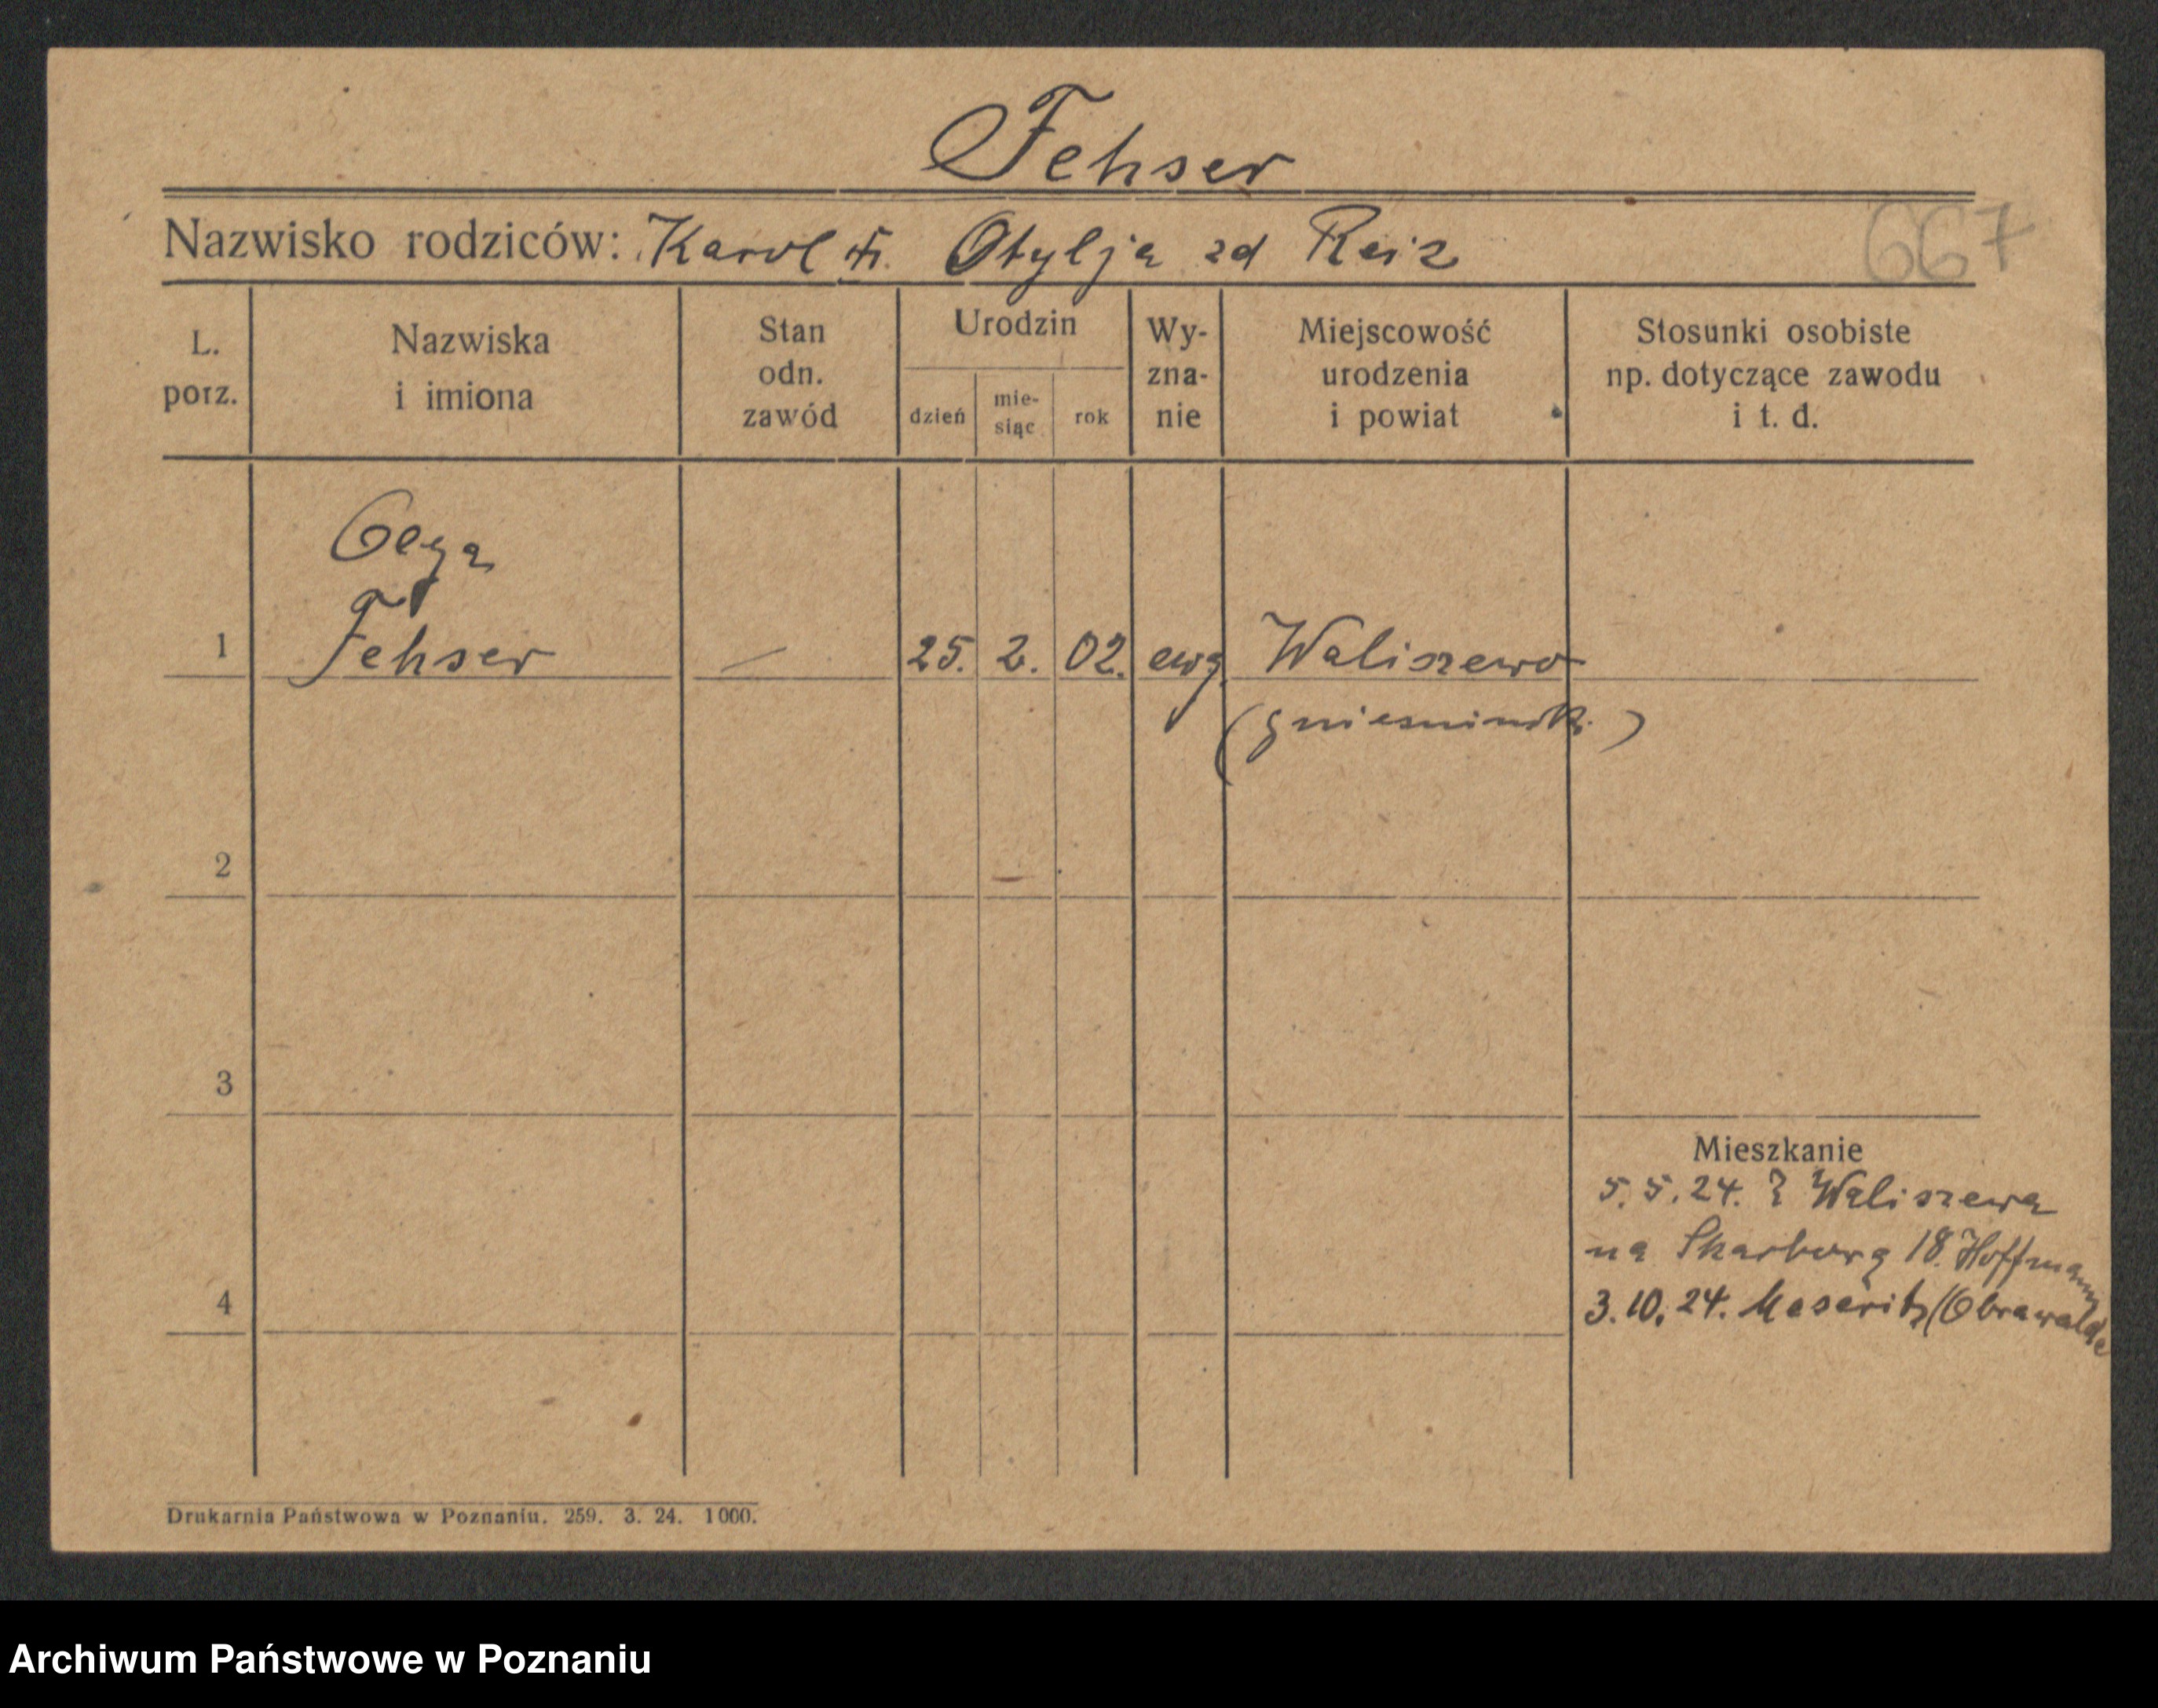 Fehser
Nazwisko rodziców: Karol Otylja zd Reiz
667
L. porz.
Nazwiska i imiona
Stan odn. zawód
Urodzin
dzień
mie- siąc
rok
Wy- zna- nie
Miejscowość urodzenia i powiat
Stosunki osobiste np. dotyczące zawodu i t. d.
Olga
1 Fehser — 25. 2. 02. ewg. Waliszewo
(gnieźnieńsk.)
2
3
4
Mieszkanie
5.5.24. Z Waliszewa
na Skarbową 18. Hoffmann
3.10.24. Meseritz (Obrawalde
Drukarnia Państwowa w Poznaniu. 259. 3. 24. 1000.
Archiwum Państwowe w Poznaniu